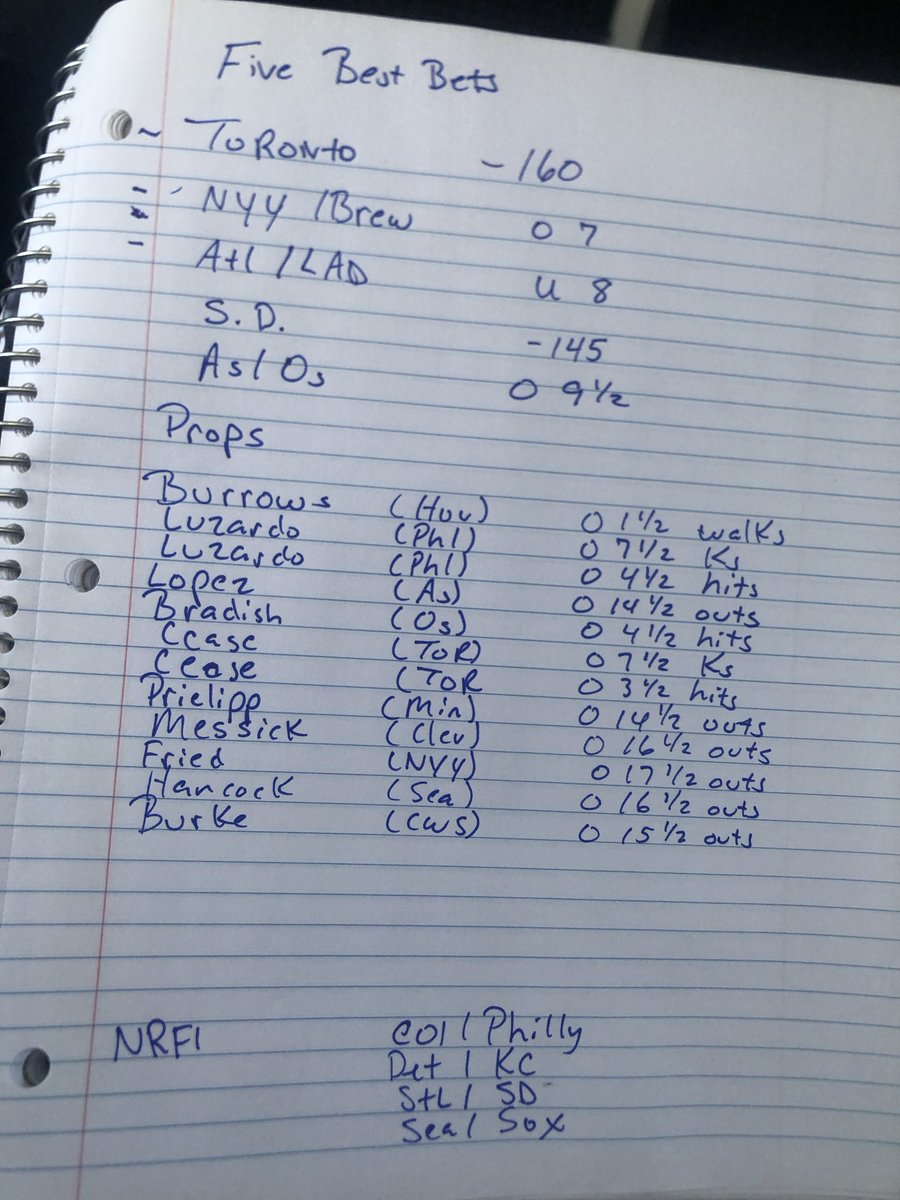 Five Best Bets
~ TORONTO -160
NYY / Brew O 7
Atl / LAD U 8
S.D. -145
As / Os O 9 1/2
Props
Burrows (Hou) O 1 1/2 walks
Luzardo (Phl) O 7 1/2 Ks
Luzardo (Phl) O 4 1/2 hits
Lopez (As) O 14 1/2 outs
Bradish (Os) O 4 1/2 hits
Cease (TOR) O 7 1/2 Ks
Cease (TOR O 3 1/2 hits
Prielipp (Min) O 14 1/2 outs
Messick (Clev) O 16 1/2 outs
Fried (NYY) O 17 1/2 outs
Hancock (Sea) O 16 1/2 outs
Burke (CWS) O 15 1/2 outs
NRFI Col / Philly
Det / KC
StL / SD
Sea / Sox